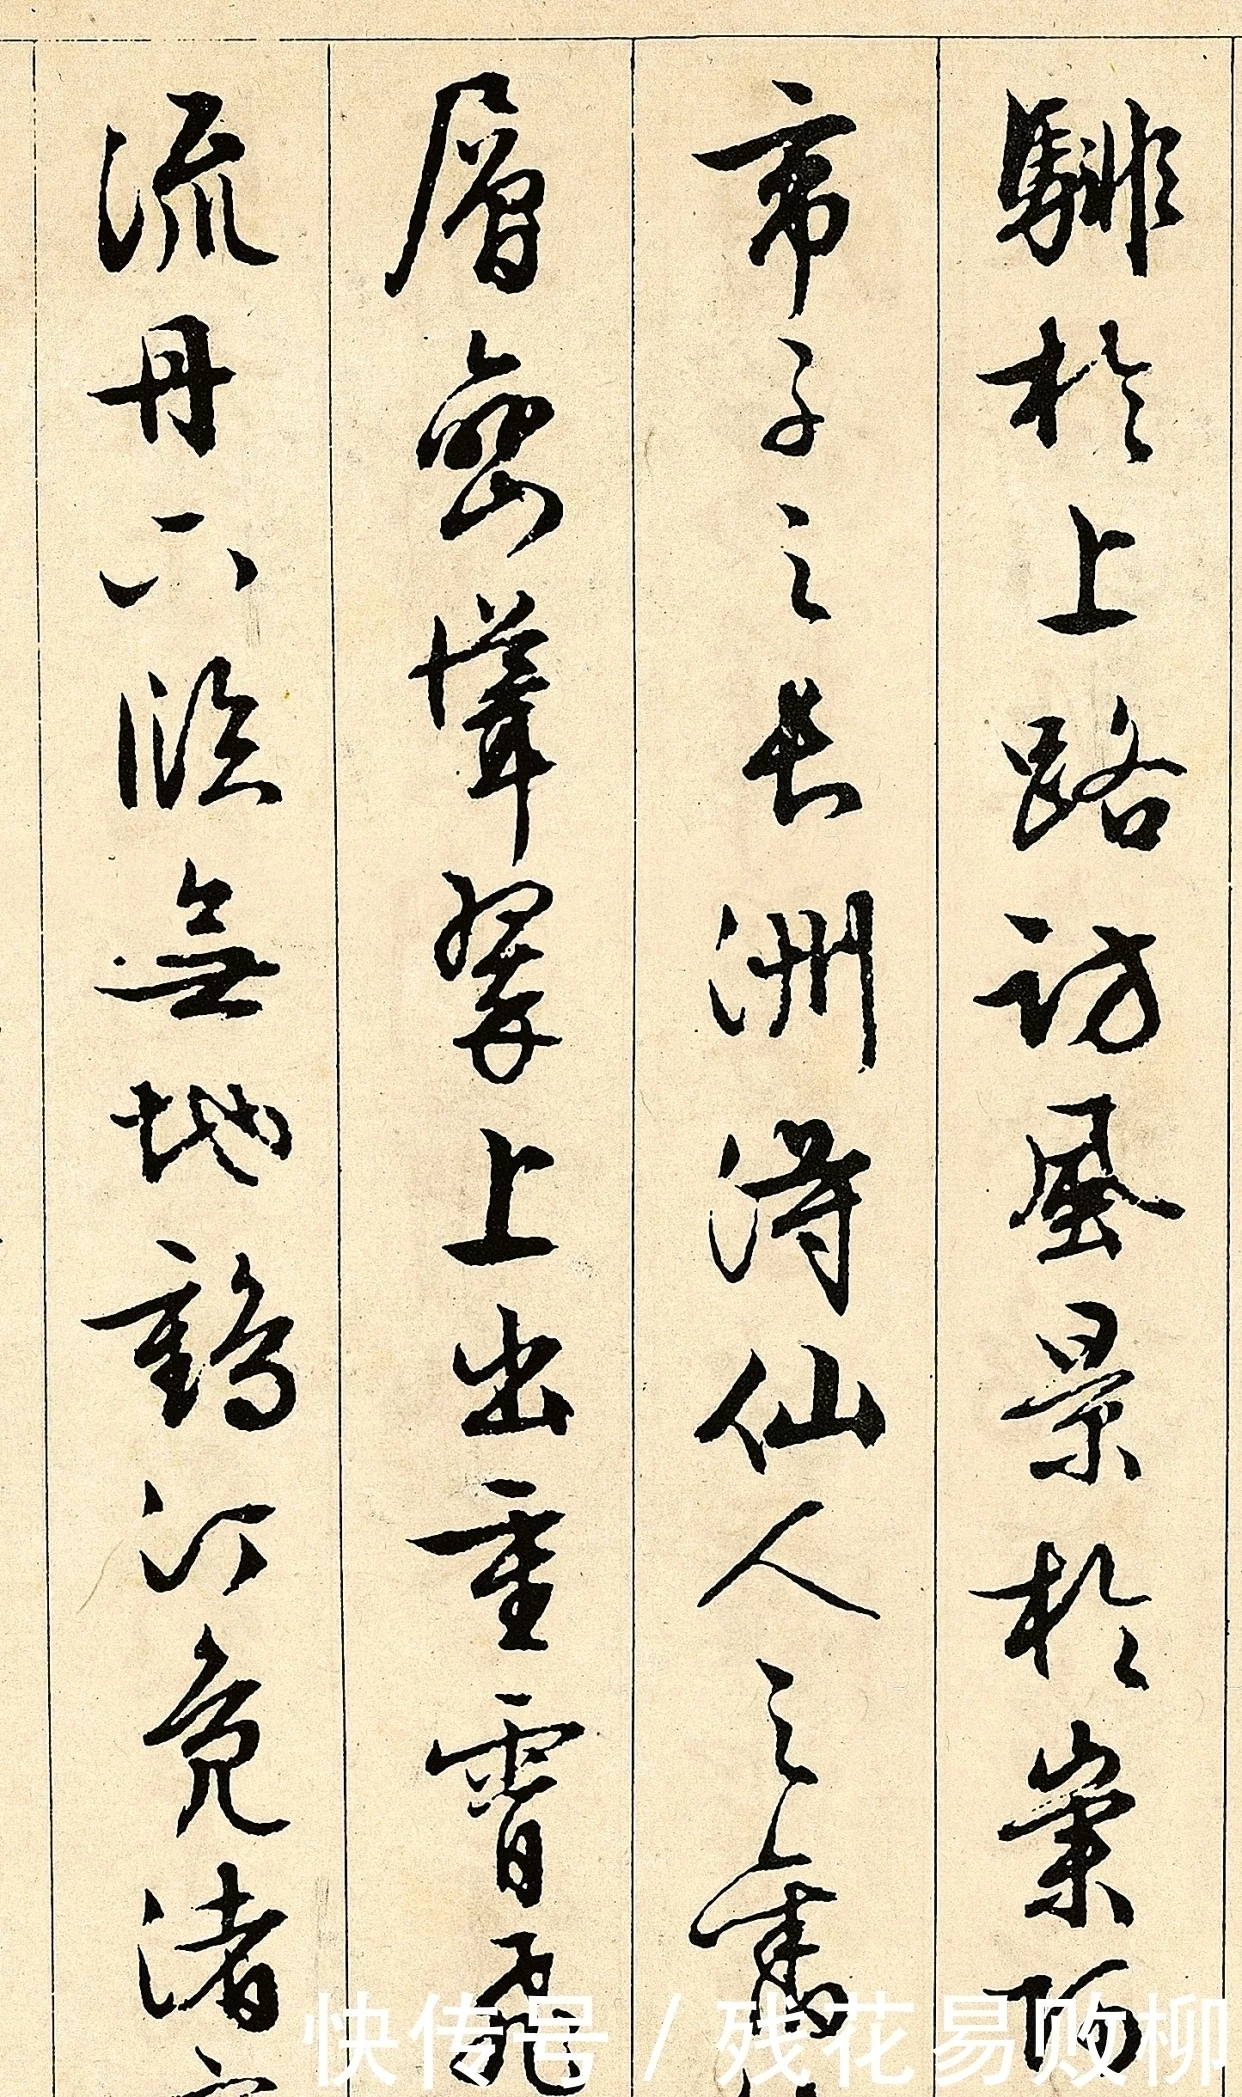 騑於上路訪風景於崇阿
帝子之長洲得仙人之舊
層巒聳翠上出重霄飛
流丹下臨無地鶴汀鳧渚
快传号/残花易败柳